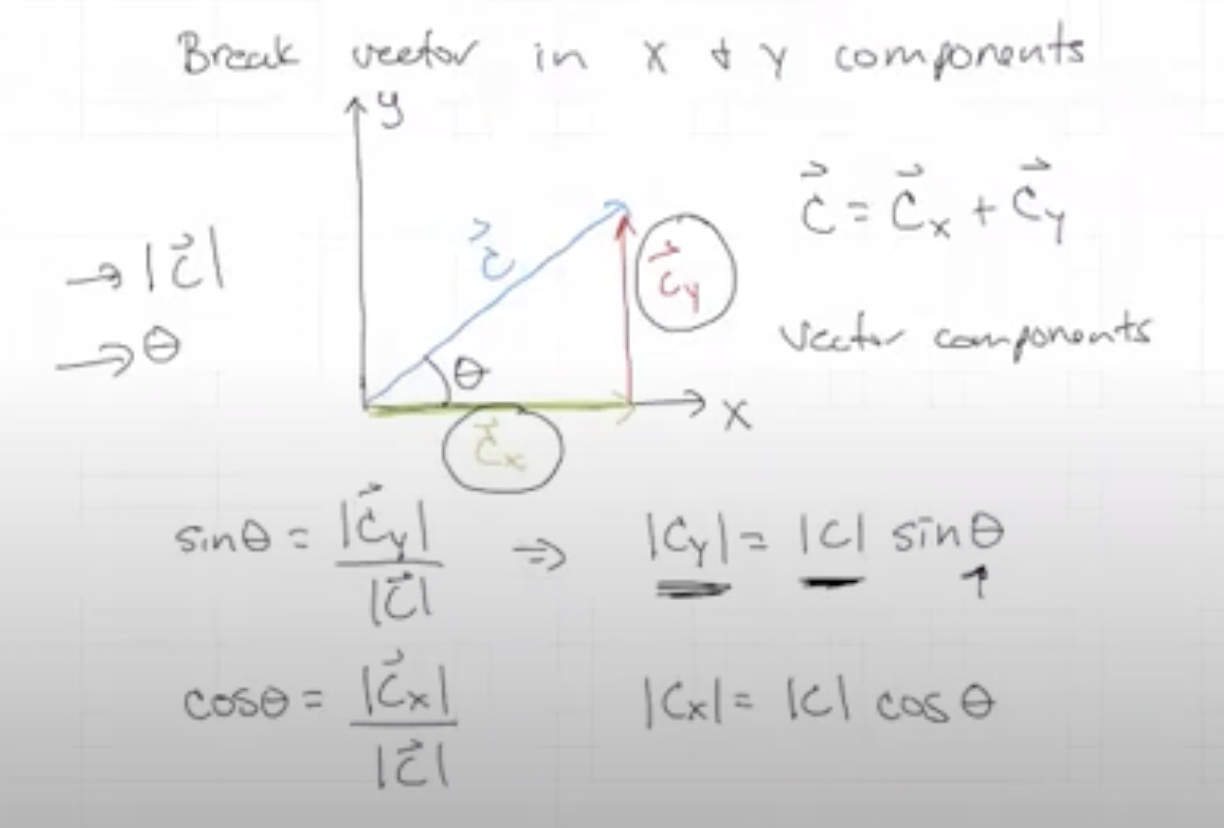 Break vector in x & y components
y
→ |C⃗|
→ θ
C⃗
C⃗y
θ
x
C⃗x
C⃗ = C⃗x + C⃗y
vector components
sinθ = |C⃗y| / |C⃗| ⇒ |Cy| = |C| sinθ
cosθ = |C⃗x| / |C⃗|
|Cx| = |C| cosθ